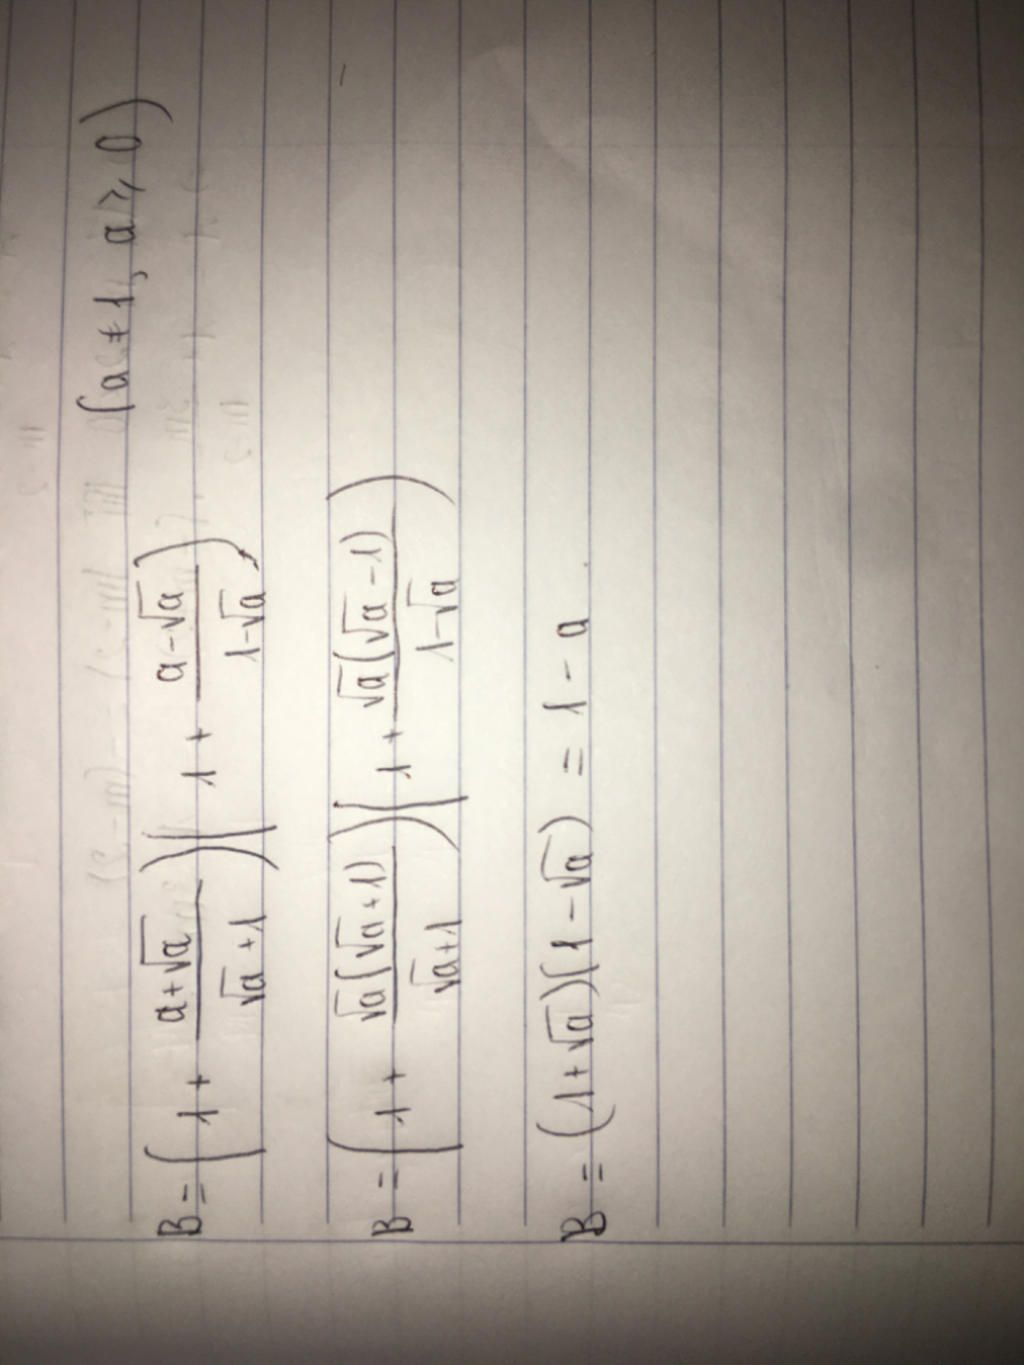 B = (1 + (a+√a)/(√a+1))(1 + (a-√a)/(1-√a)) (a ≠ 1, a ⩾ 0)
B = (1 + √a(√a+1)/(√a+1))(1 + √a(√a-1)/(1-√a))
B = (1+√a)(1-√a) = 1 - a